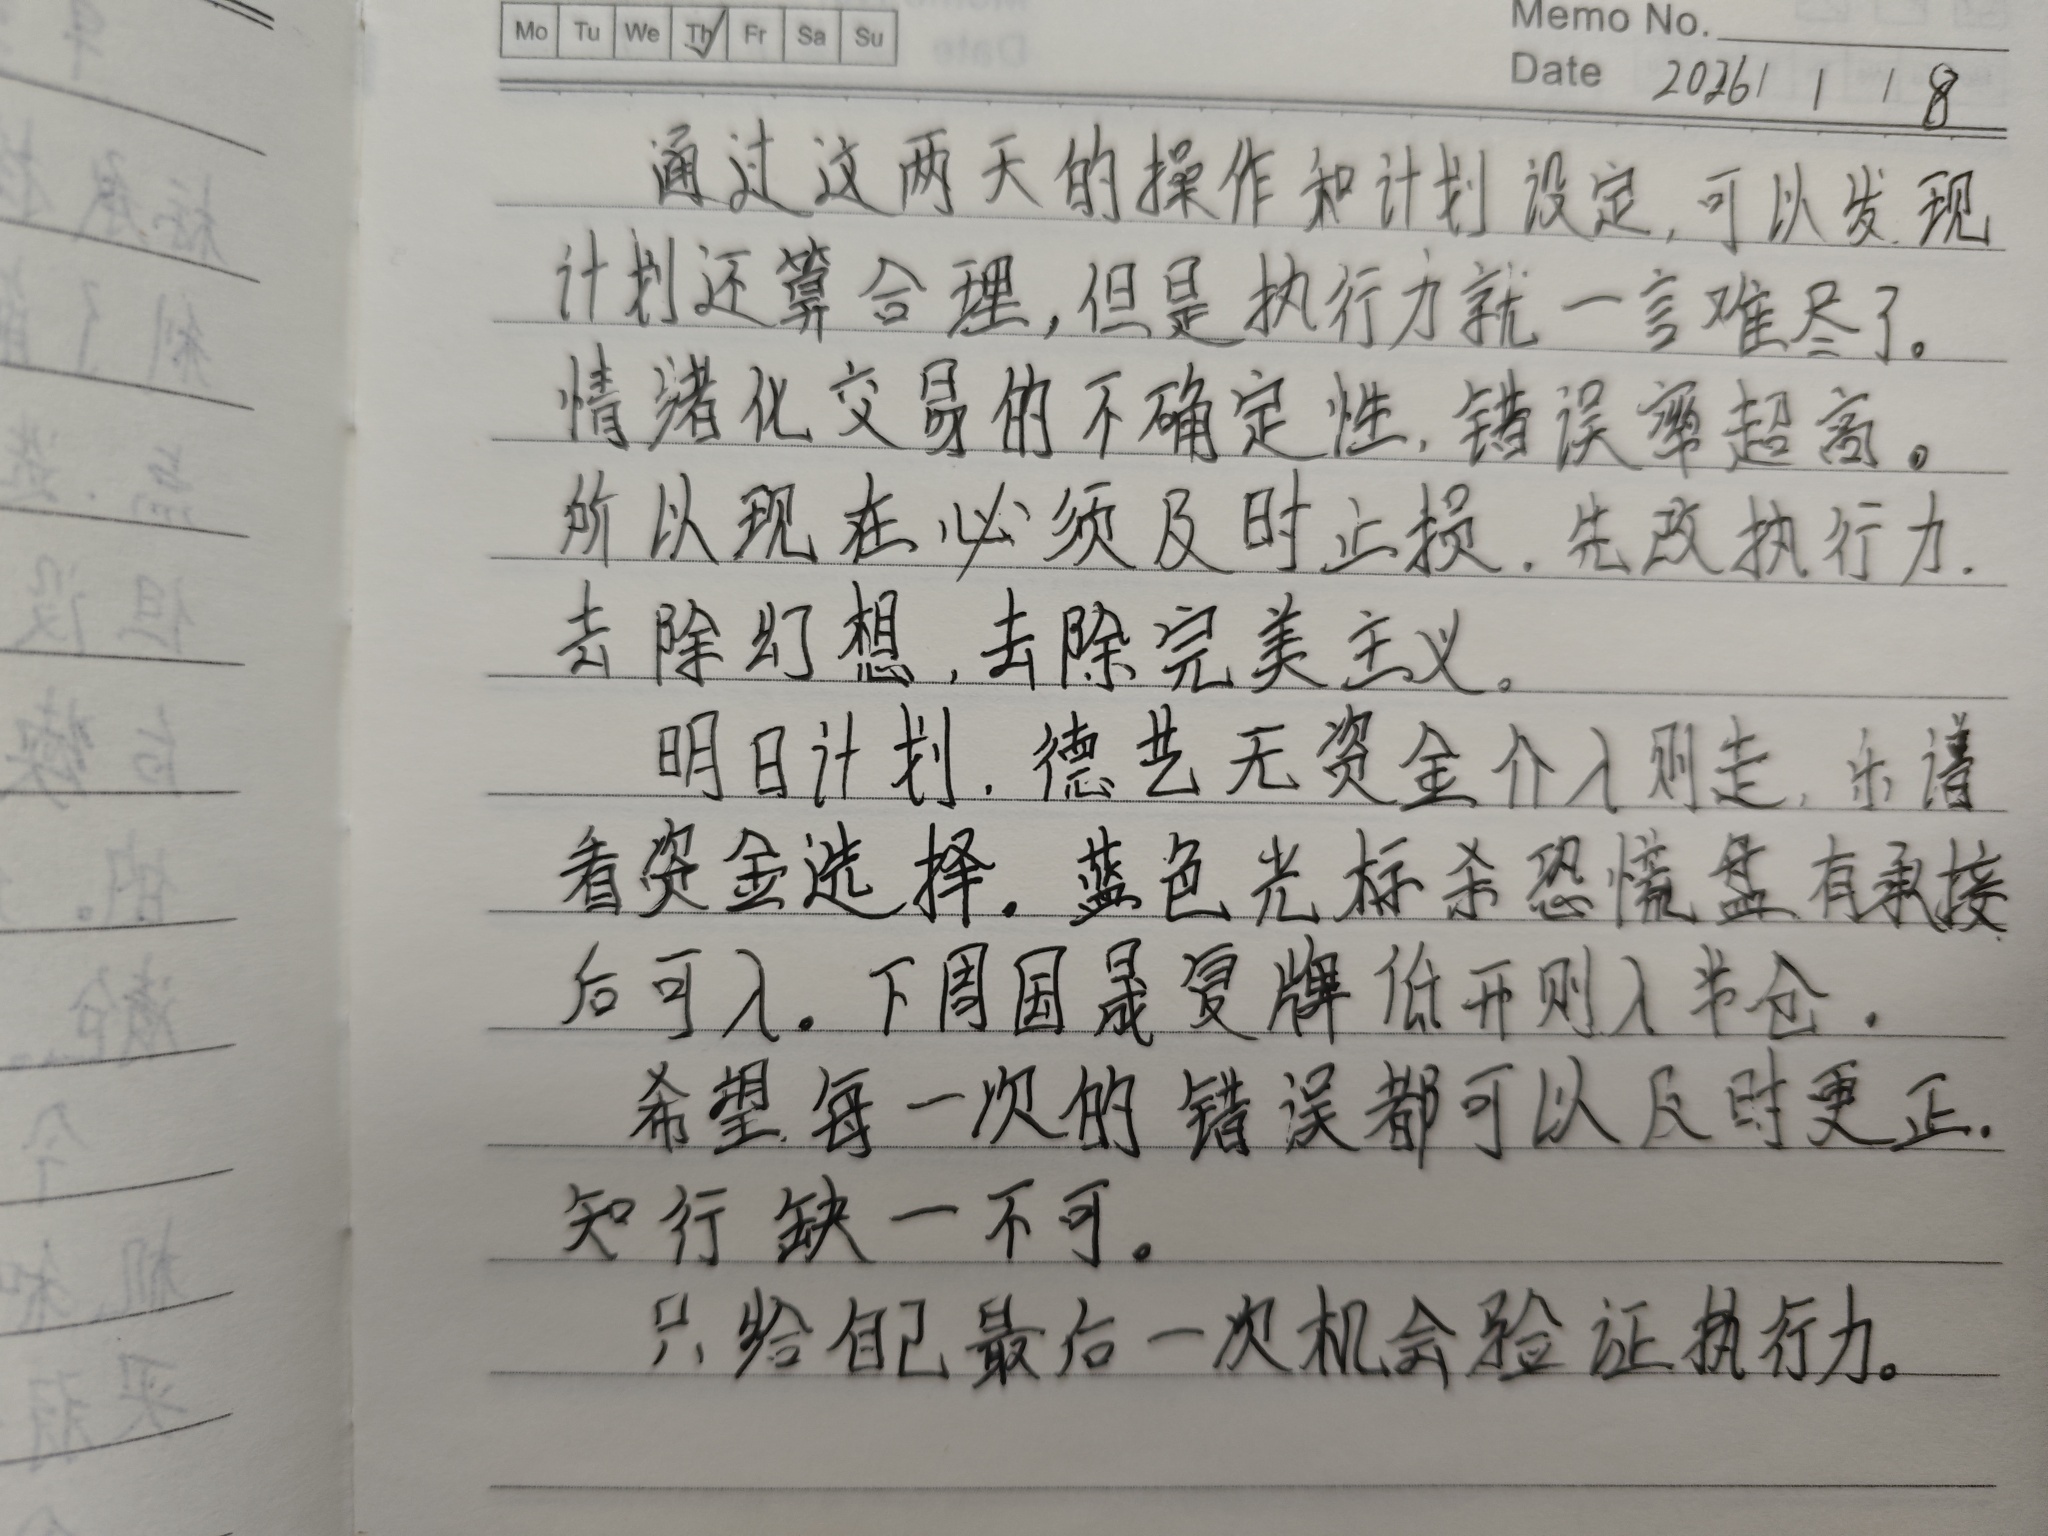 Mo Tu We Th Fr Sa Su
Memo No.
Date 2026 1 1 8
通过这两天的操作和计划设定,可以发现
计划还算合理,但是执行力就一言难尽了。
情绪化交易的不确定性,错误率超高。
所以现在必须及时止损.先改执行力.
去除幻想,去除完美主义。
明日计划.德艺无资金介入则走,乐谱
看资金选择.蓝色光标杀恐慌盘有承接
后可入.下周国晟复牌低开则入半仓.
希望每一次的错误都可以及时更正.
知行缺一不可。
只给自己最后一次机会验证执行力。